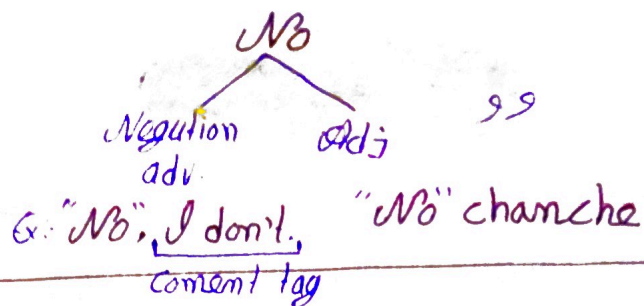 No
Negution Adj ,,
adv.
Ex. "No", I don't. "No" chanche
coment tag